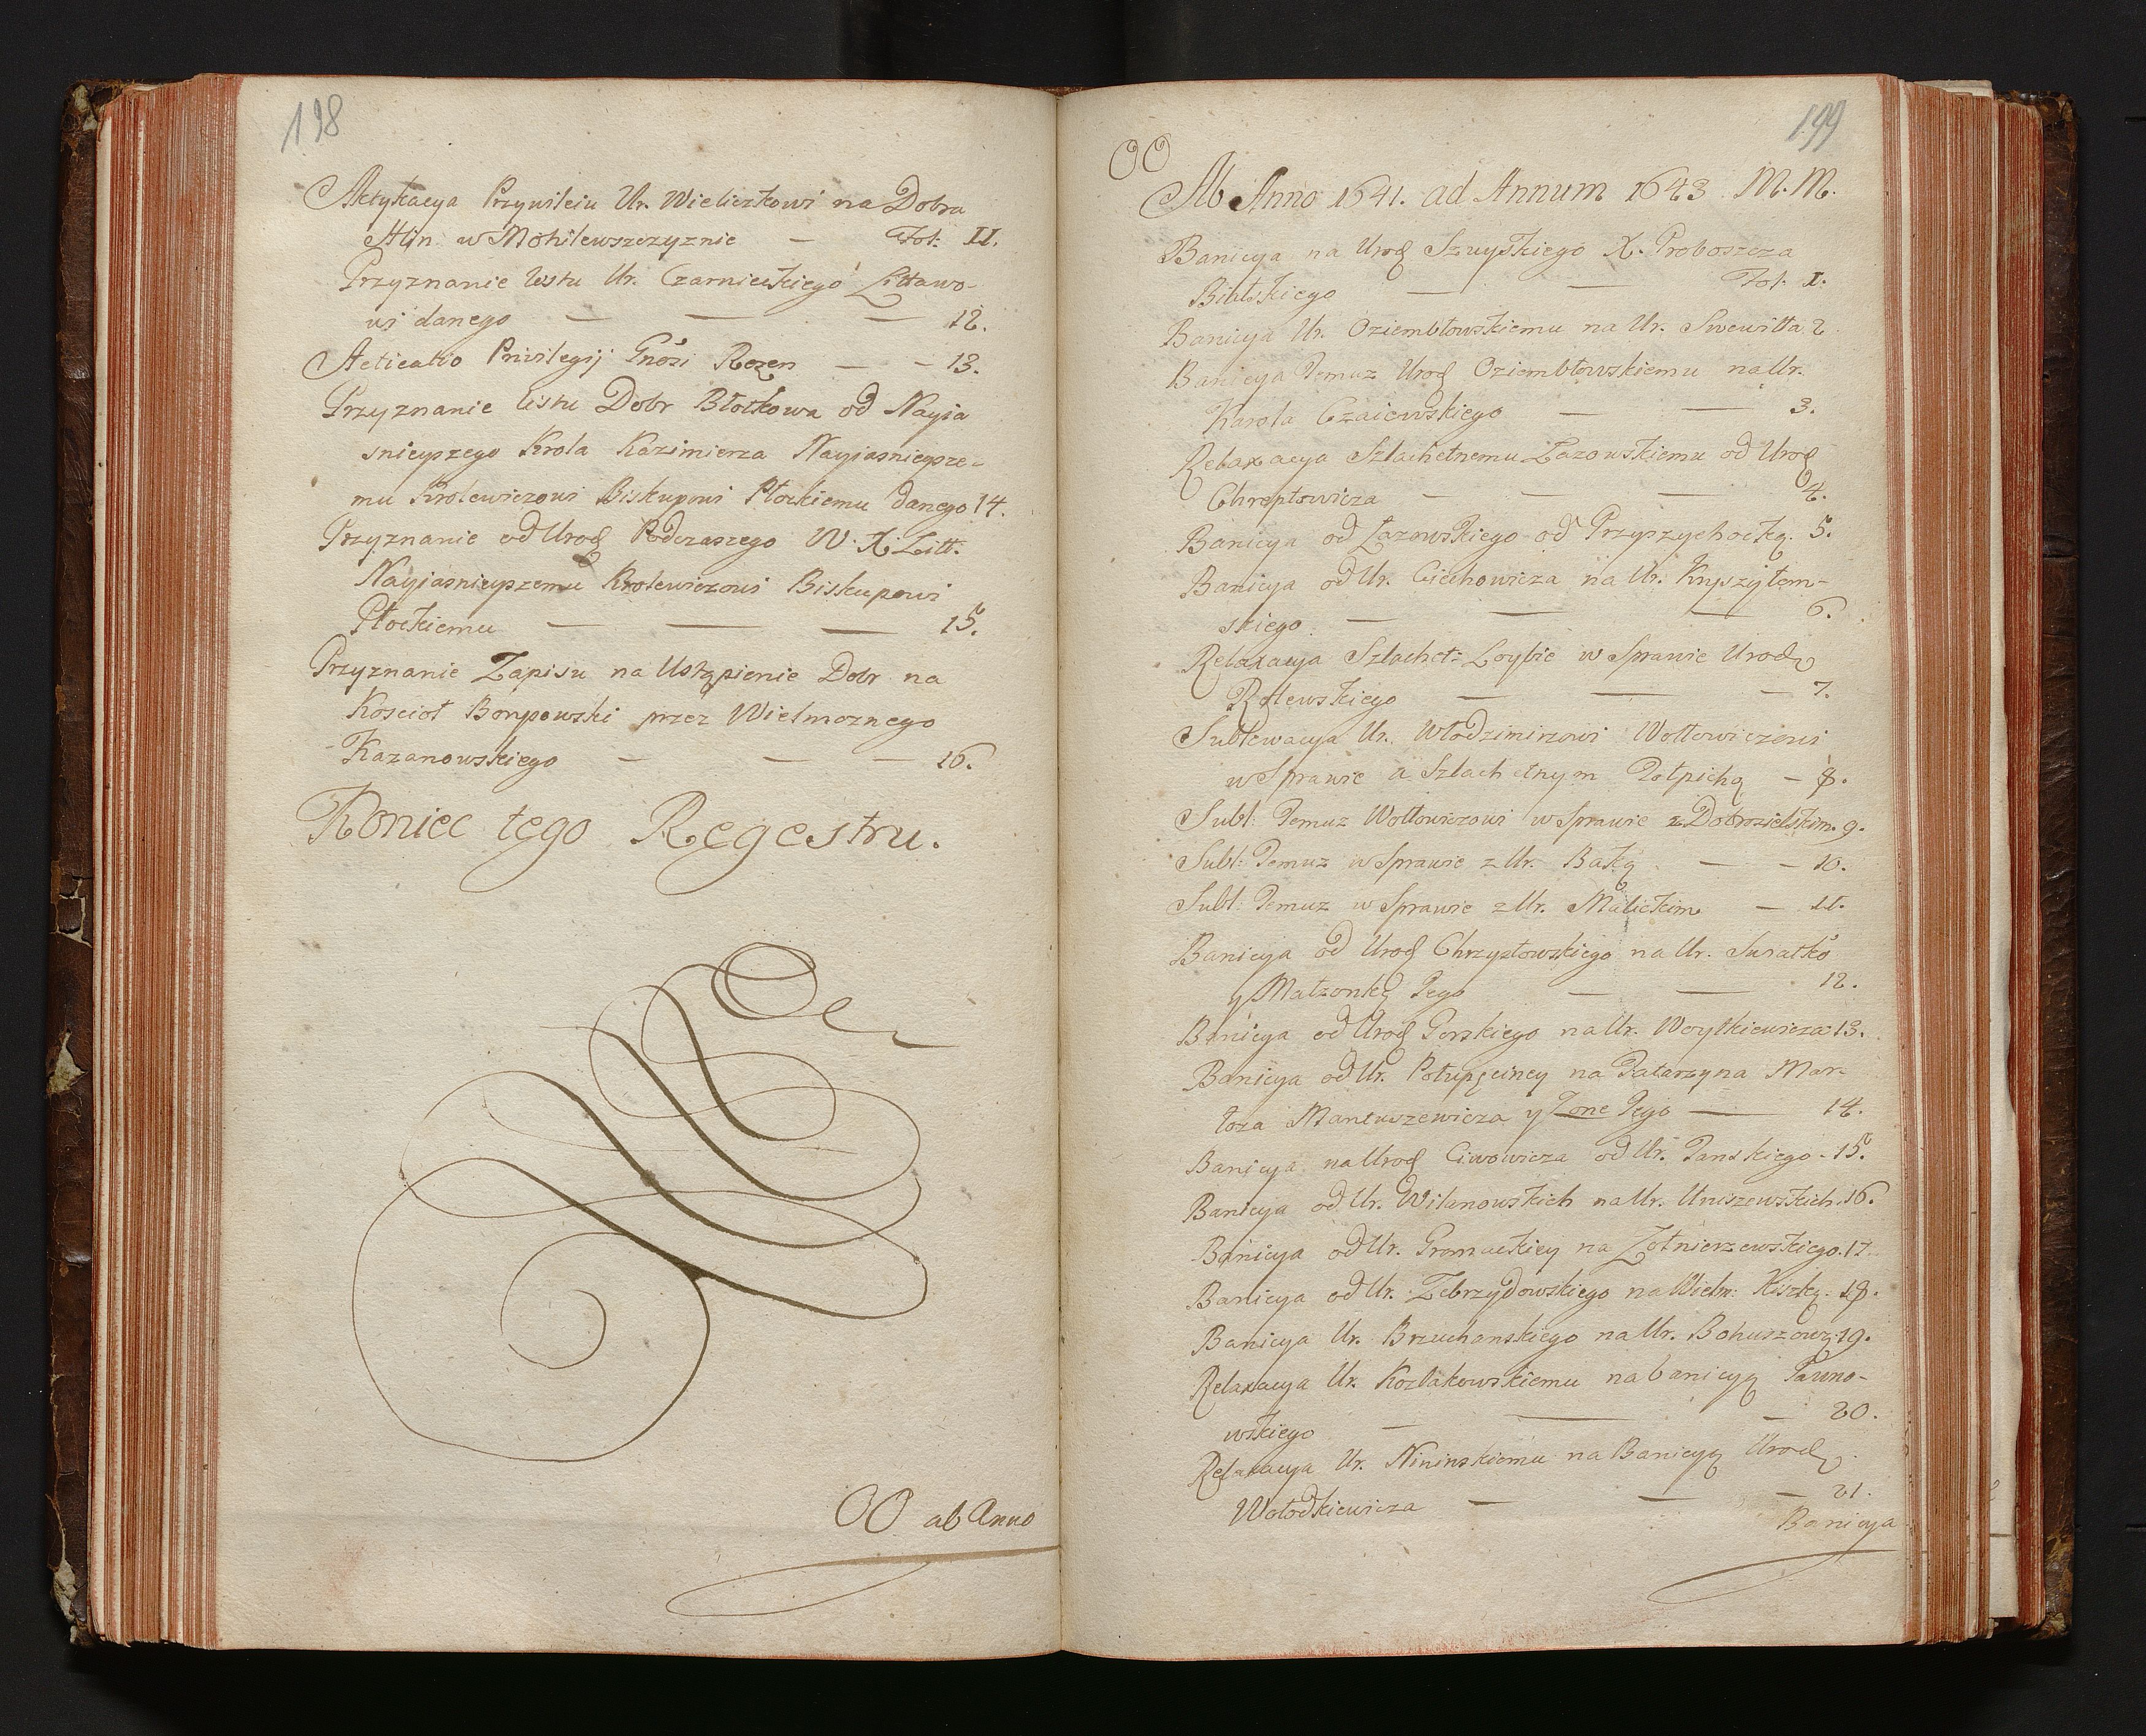 198
Aktykacya Przywileiu Ur. Wieliczkowi na Dobra
Hlin w Mohilewszczyznie — Fol: II.
Przyznanie Listu Ur. Czarnieckiego Littawo-
wi danego — — — 12.
Acticatio Privilegij Gnosi Rozen — — 13.
Przyznanie Listu Dobr Błotkowa od Nayia
snieyszego Krola Kazimierza Nayiasnieysze-
mu Krolewiczowi Biskupowi Płockiemu danego 14.
Przyznanie od Urod Podczaszego W. X. Litt.
Nayiasnieyszemu Krolewiczowi Biskupowi
Płockiemu — — — 15.
Przyznanie Zapisu na Ustąpienie Dobr na
Koscioł Bonpowski przez Wielmoznego
Kazanowskiego — — — 16.
Koniec tego Regestru.
OO ab Anno
199
OO
Ab Anno 1641. ad Annum 1643 M. M.
Banicya na Urod Szuyskiego X. Proboszcza
Bialskiego — — Fol. I.
Banicya Ur. Oziembłowskiemu na Ur. Snewitta 2.
Banicya Temuz Urod Oziembłowskiemu na Ur.
Karola Czaiewskiego — — 3.
Relaxacya Szlachetnemu Łazowskiemu od Urod
Chreptowicza — — — 4.
Banicya od Łazowskiego od Przyszychocką. 5.
Banicya od Ur. Ciechowicza na Ur. Kryszytem-
skiego. — — — 6.
Relaxacya Szlachet: Loybie w Sprawie Urod
Rolewskiego — — — 7.
Sublewacya Ur. Włodzimirzowi Wołłowiczowi
w Sprawie a Szlachetnym Połpichą — 8.
Subl: Temuz Wołłowiczowi w Sprawie z Dobrosielskim. 9.
Subl: Temuz w Sprawie z Ur. Baką — — 10.
Subl: Temuz w Sprawie z Ur. Malickim — 11.
Banicya od Urod Chrzystowskiego na Ur. Suratko
y Małzonkę Jego — — 12.
Banicya od Urod Gorskiego na Ur. Woytkiewicza 13.
Banicya od Ur. Połupęciney na Tatarzyna Mor-
toza Mantuszewicza y Zone Jego — 14.
Banicya na Urod Ciwowicza od Ur. Panskiego - 15.
Banicya od Ur. Wilanowskich na Ur. Uniszewskich. 16.
Banicya od Ur. Gromackiey na Zołnierzewskiego. 17.
Banicya od Ur. Zebrzydowskiego na Wielm: Kiszkę. 18.
Banicya Ur. Brzuchanskiego na Ur. Bohuszową. 19.
Relaxacya Ur. Kozlakowskiemu na banicyą Pawno-
wskiego — — — 20.
Relaxacya Ur. Nininskiemu na Banicyą Urod
Wołodkiewicza — — — 21.
Banicya